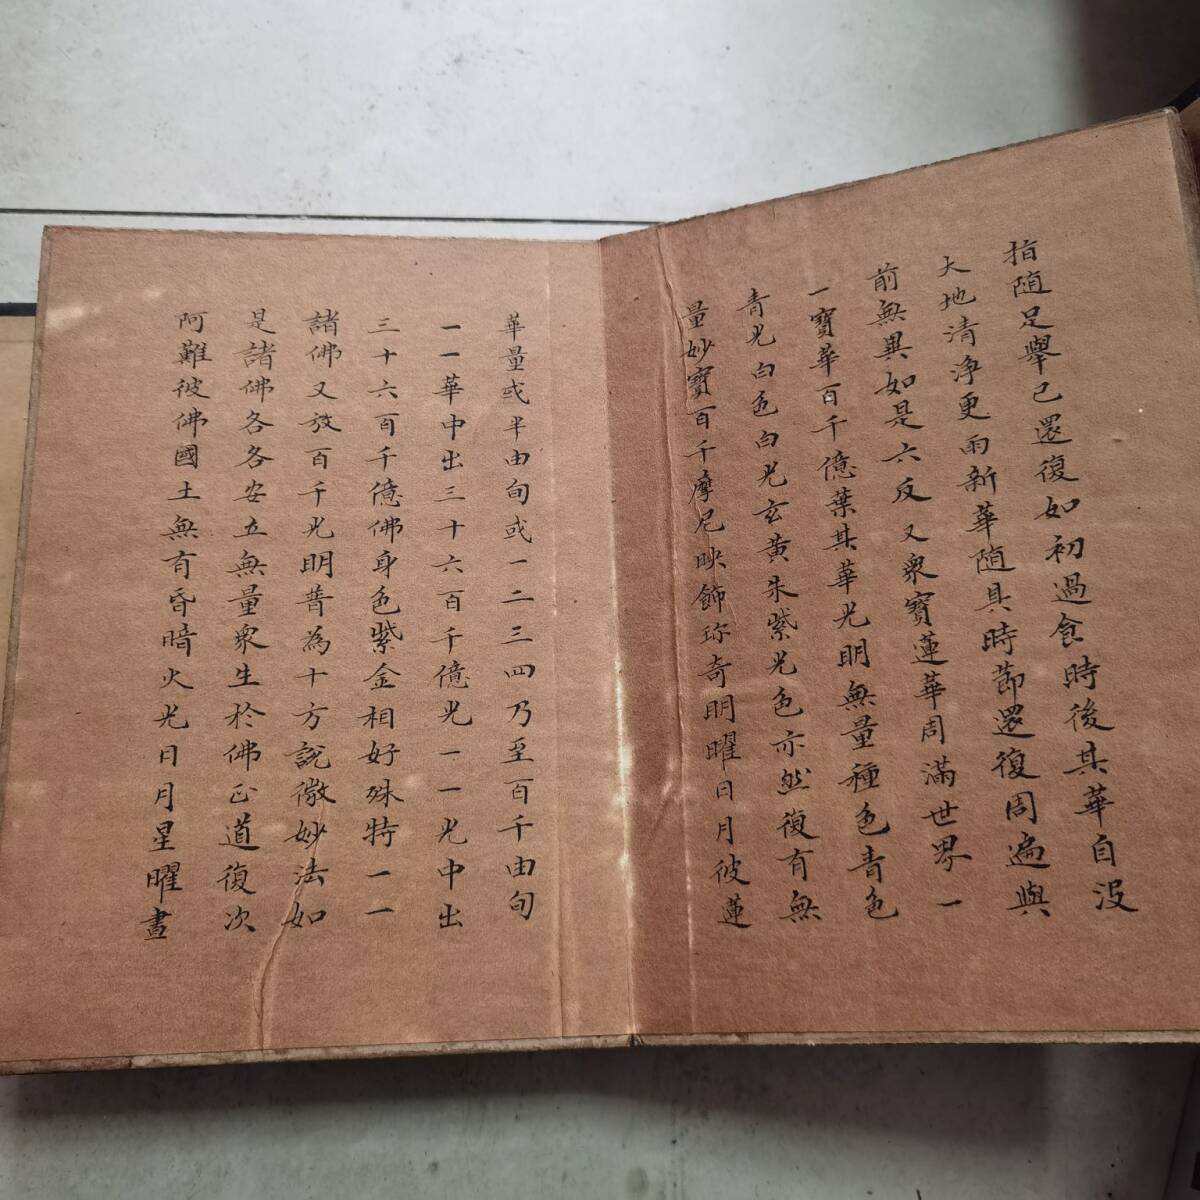 指随足舉已還復如初過食時後其華自沒
大地清淨更雨新華随其時節還復周遍與
前無異如是六反又衆寳蓮華周滿世界一
一寳華百千億葉其華光明無量種色青色
青光白色白光玄黃朱紫光色亦然復有無
量妙寳百千摩尼映飾珎奇明曜日月彼蓮
華量或半由旬或一二三四乃至百千由旬
一一華中出三十六百千億光一一光中出
三十六百千億佛身色紫金相好殊特一一
諸佛又放百千光明普為十方說微妙法如
是諸佛各各安立無量衆生於佛正道復次
阿難彼佛國土無有昏暗火光日月星曜晝